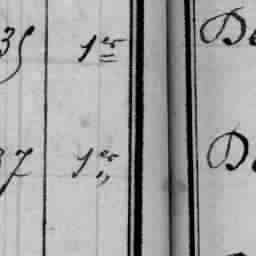 35 1er De
37 1er De